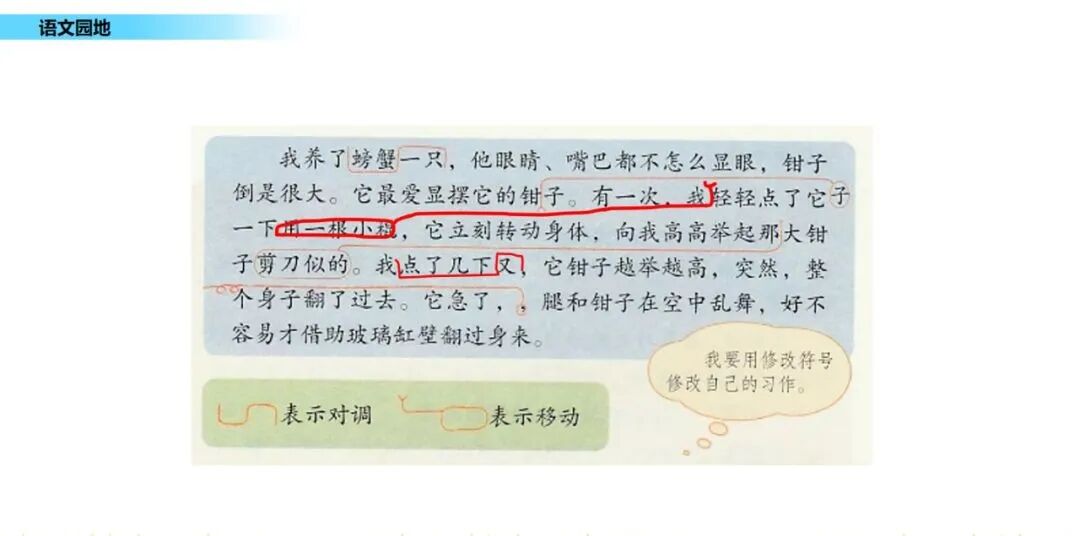 语文园地
我养了螃蟹一只，他眼睛、嘴巴都不怎么显眼，钳子
倒是很大。它最爱显摆它的钳子。有一次，我轻轻点了它子
一下用一根小棍，它立刻转动身体，向我高高举起那大钳
子剪刀似的。我点了几下又，它钳子越举越高，突然，整
个身子翻了过去。它急了，，腿和钳子在空中乱舞，好不
容易才借助玻璃缸壁翻过身来。
我要用修改符号
修改自己的习作。
表示对调 表示移动